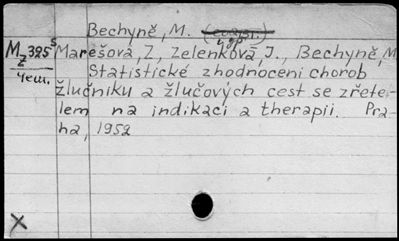 Bechyně, M.
Marešová, Z, Zelenková, J., Bechyně, M
Mz 325 s
чеш.
Statistické zhodnocení chorob
žlučníku a žlučových cest se zřete-
lem na indikaci a therapii. Pra-
ha, 1952
X